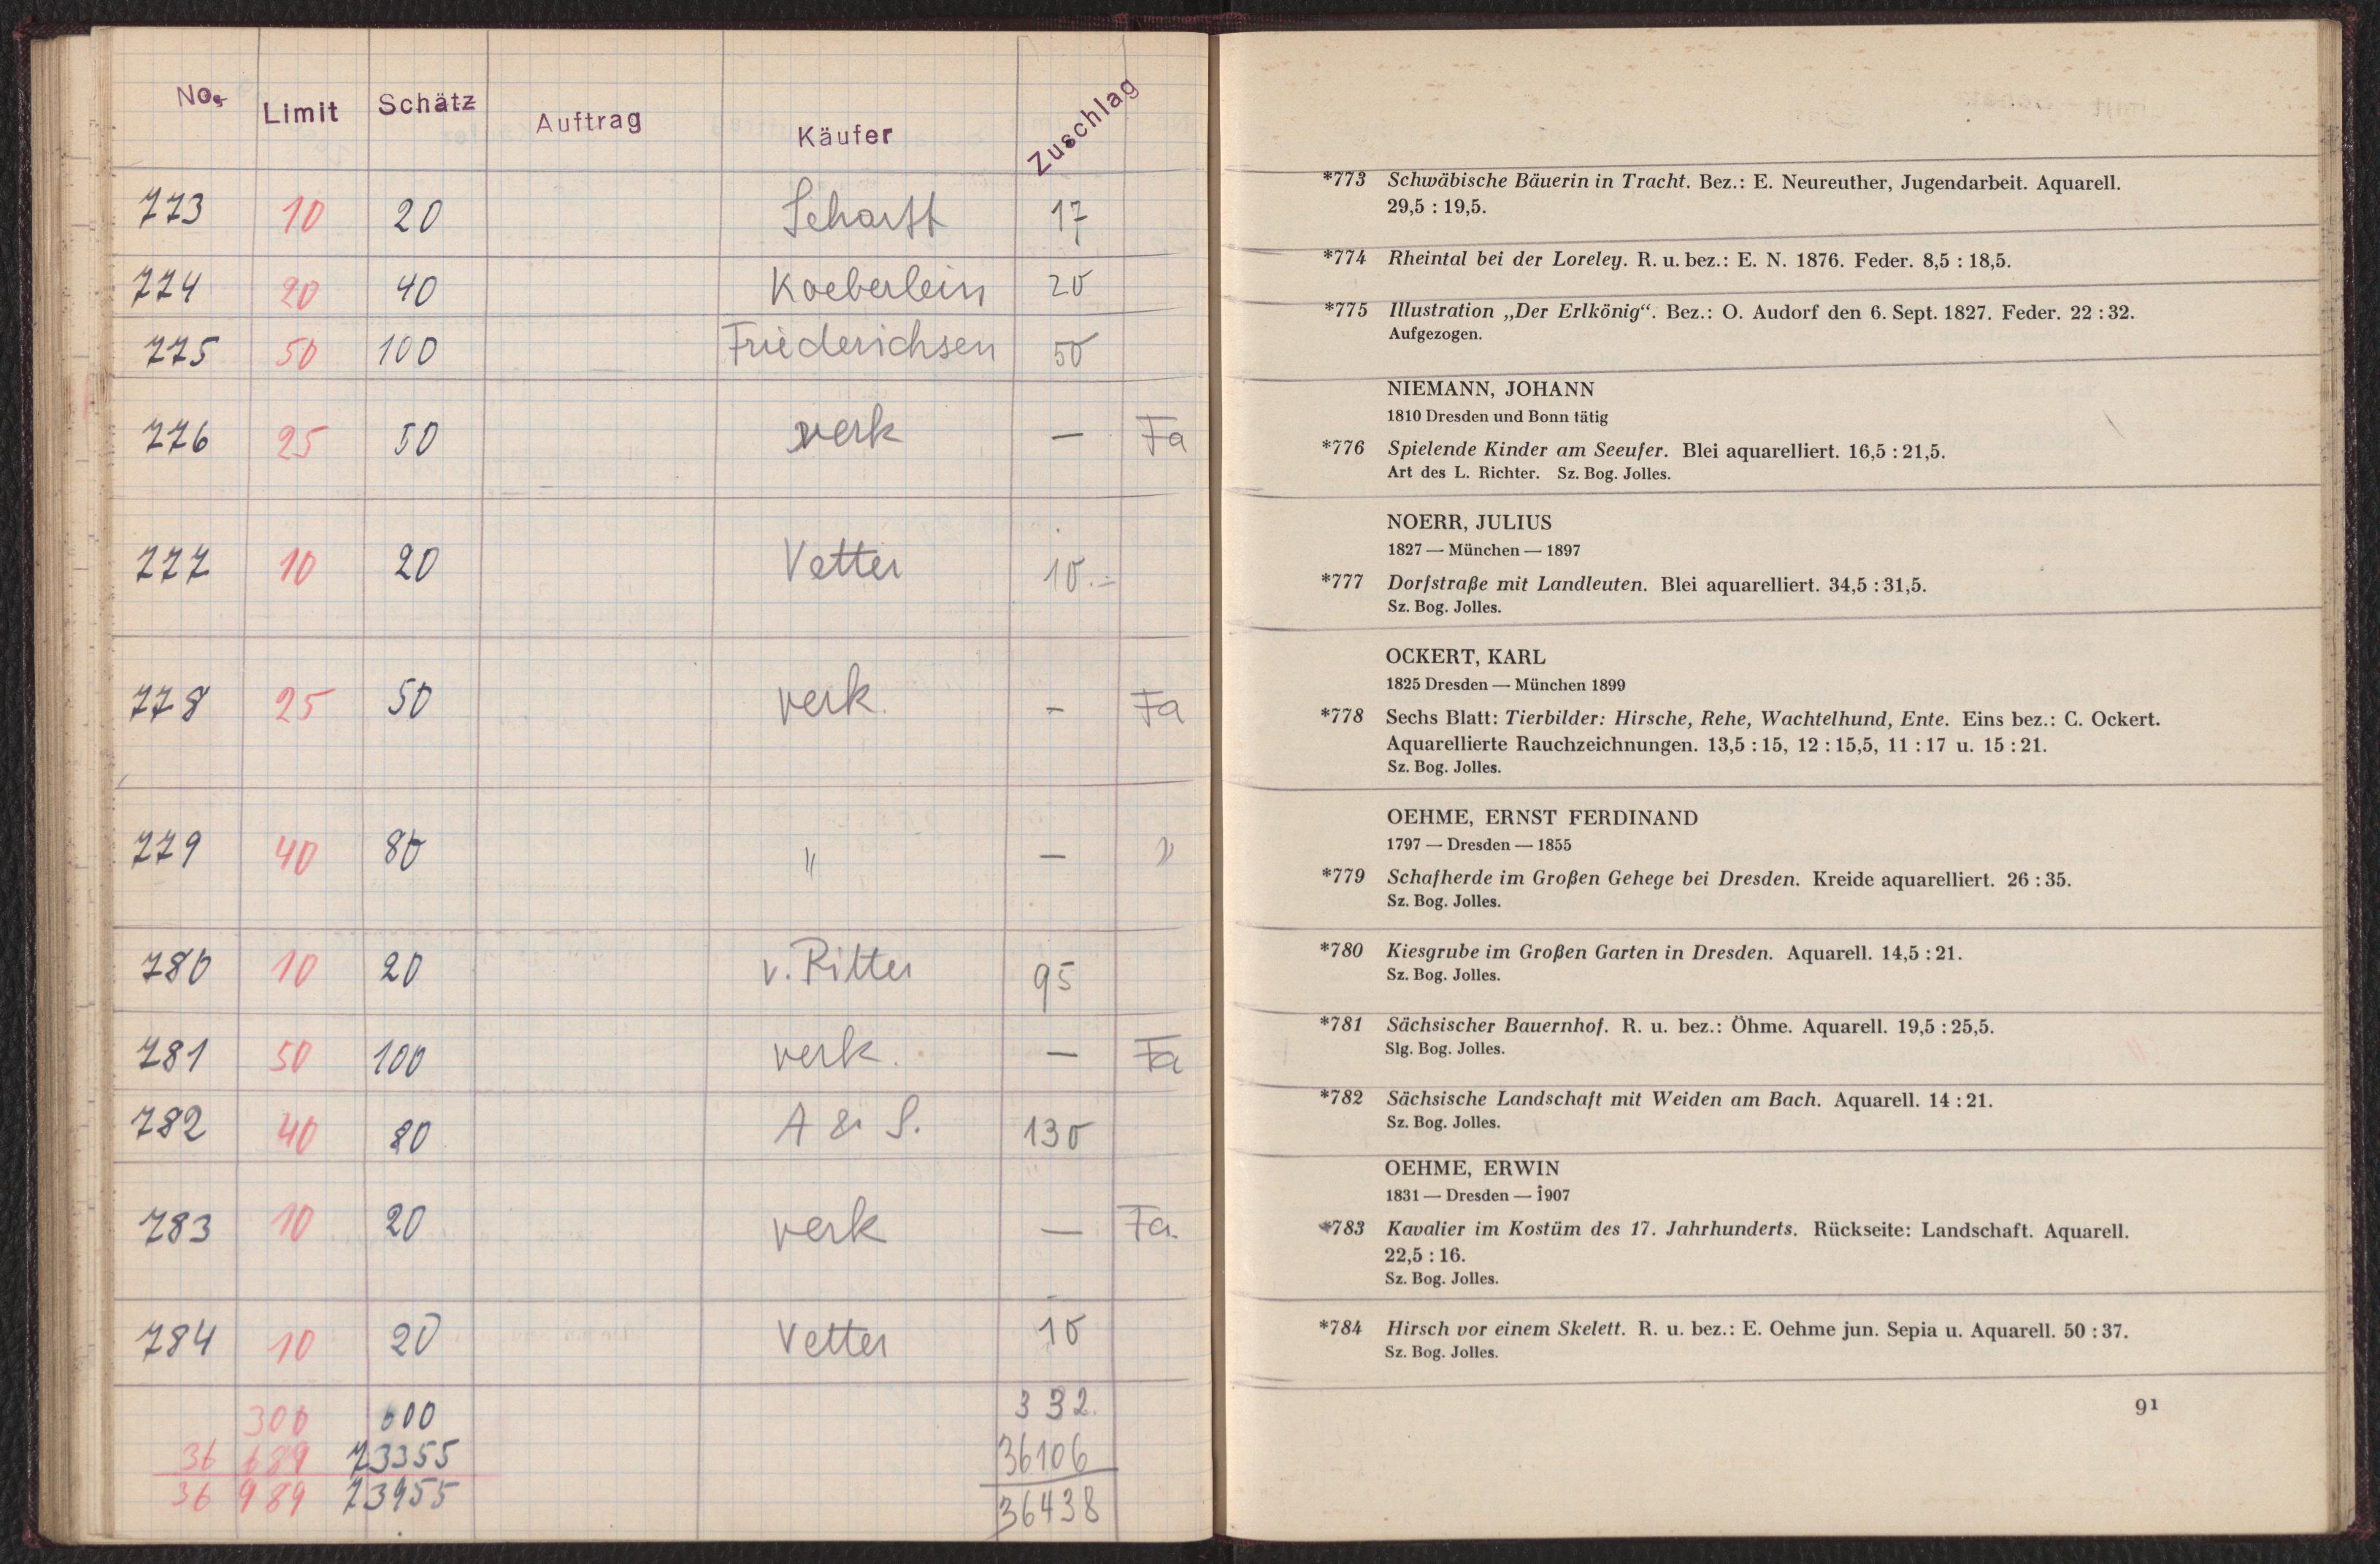 No. Limit Schätz Auftrag Käufer Zuschlag
773 10 20 Scharff 17
774 20 40 Koeberlein 20
775 50 100 Friederichsen 50
776 25 50 verk — Fa
777 10 20 Vetter 10.-
778 25 50 verk. - Fa
779 40 80 " — "
780 10 20 v. Ritter 95
781 50 100 verk. — Fa
782 40 80 A & S. 130
783 10 20 verk — Fa.
784 10 20 Vetter 10
300 600 332.
36 689 73355 36106
36 989 73955 36438
*773 Schwäbische Bäuerin in Tracht. Bez.: E. Neureuther, Jugendarbeit. Aquarell.
29,5 : 19,5.
*774 Rheintal bei der Loreley. R. u. bez.: E. N. 1876. Feder. 8,5 : 18,5.
*775 Illustration „Der Erlkönig“. Bez.: O. Audorf den 6. Sept. 1827. Feder. 22 : 32.
Aufgezogen.
NIEMANN, JOHANN
1810 Dresden und Bonn tätig
*776 Spielende Kinder am Seeufer. Blei aquarelliert. 16,5 : 21,5.
Art des L. Richter. Sz. Bog. Jolles.
NOERR, JULIUS
1827 — München — 1897
*777 Dorfstraße mit Landleuten. Blei aquarelliert. 34,5 : 31,5.
Sz. Bog. Jolles.
OCKERT, KARL
1825 Dresden — München 1899
*778 Sechs Blatt: Tierbilder: Hirsche, Rehe, Wachtelhund, Ente. Eins bez.: C. Ockert.
Aquarellierte Rauchzeichnungen. 13,5 : 15, 12 : 15,5, 11 : 17 u. 15 : 21.
Sz. Bog. Jolles.
OEHME, ERNST FERDINAND
1797 — Dresden — 1855
*779 Schafherde im Großen Gehege bei Dresden. Kreide aquarelliert. 26 : 35.
Sz. Bog. Jolles.
*780 Kiesgrube im Großen Garten in Dresden. Aquarell. 14,5 : 21.
Sz. Bog. Jolles.
*781 Sächsischer Bauernhof. R. u. bez.: Öhme. Aquarell. 19,5 : 25,5.
Slg. Bog. Jolles.
*782 Sächsische Landschaft mit Weiden am Bach. Aquarell. 14 : 21.
Sz. Bog. Jolles.
OEHME, ERWIN
1831 — Dresden — 1907
*783 Kavalier im Kostüm des 17. Jahrhunderts. Rückseite: Landschaft. Aquarell.
22,5 : 16.
Sz. Bog. Jolles.
*784 Hirsch vor einem Skelett. R. u. bez.: E. Oehme jun. Sepia u. Aquarell. 50 : 37.
Sz. Bog. Jolles.
91